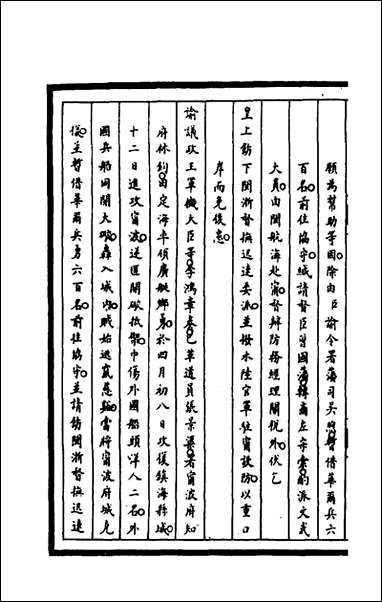 願為幫助等因除由臣諭令署藩司吳煦暫借華爾兵六
百名前往協守城請督臣曾國藩轉商左宗棠酌派文武
大員由閩航海赴甯督辦防務經理關稅外伏乞
皇上飭下閩浙督撫迅速委派並撥水陸官軍駐甯設防以重口
岸而免後患
諭議政王軍機大臣等李鴻章奏已革道員張景渠署甯波府知
府林鈞由定海率領廣艇鄉勇於四月初八日攻復鎮海縣城
十二日進攻甯波逆匪開礮抵禦中傷外國船頭洋人二名外
國兵船同開大礮轟入城內賊始退竄慈谿當將甯波府城克
復主暫借華爾兵勇六百名前往協守並請飭閩浙督撫迅速